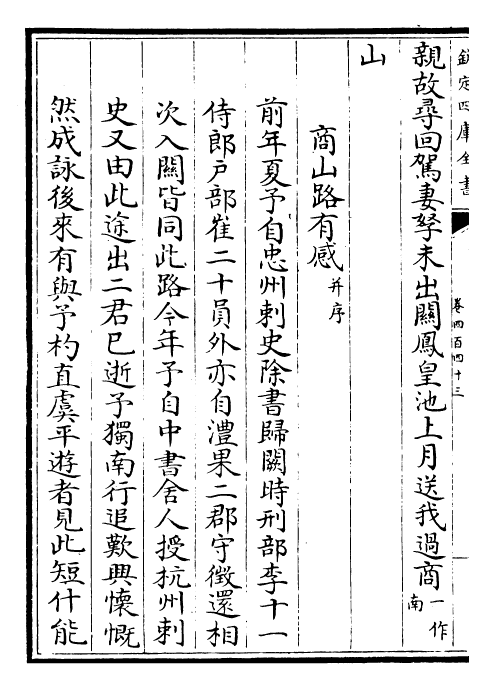 欽定四庫全書
卷四百四十三
親故尋回駕妻孥未出關鳳皇池上月送我過商一作南
山
商山路有感并序
前年夏予自忠州刺史除書歸闕時刑部李十一
侍郎戸部崔二十員外亦自澧果二郡守徵還相
次入關皆同此路今年予自中書舍人授杭州刺
史又由此途出二君已逝予獨南行追歎興懷慨
然成詠後來有與予杓直虞平遊者見此短什能